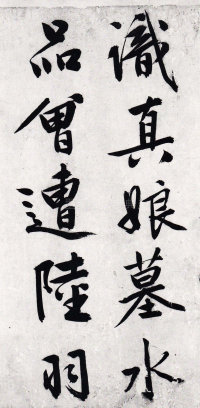 識真娘墓水
品曾遭陸羽